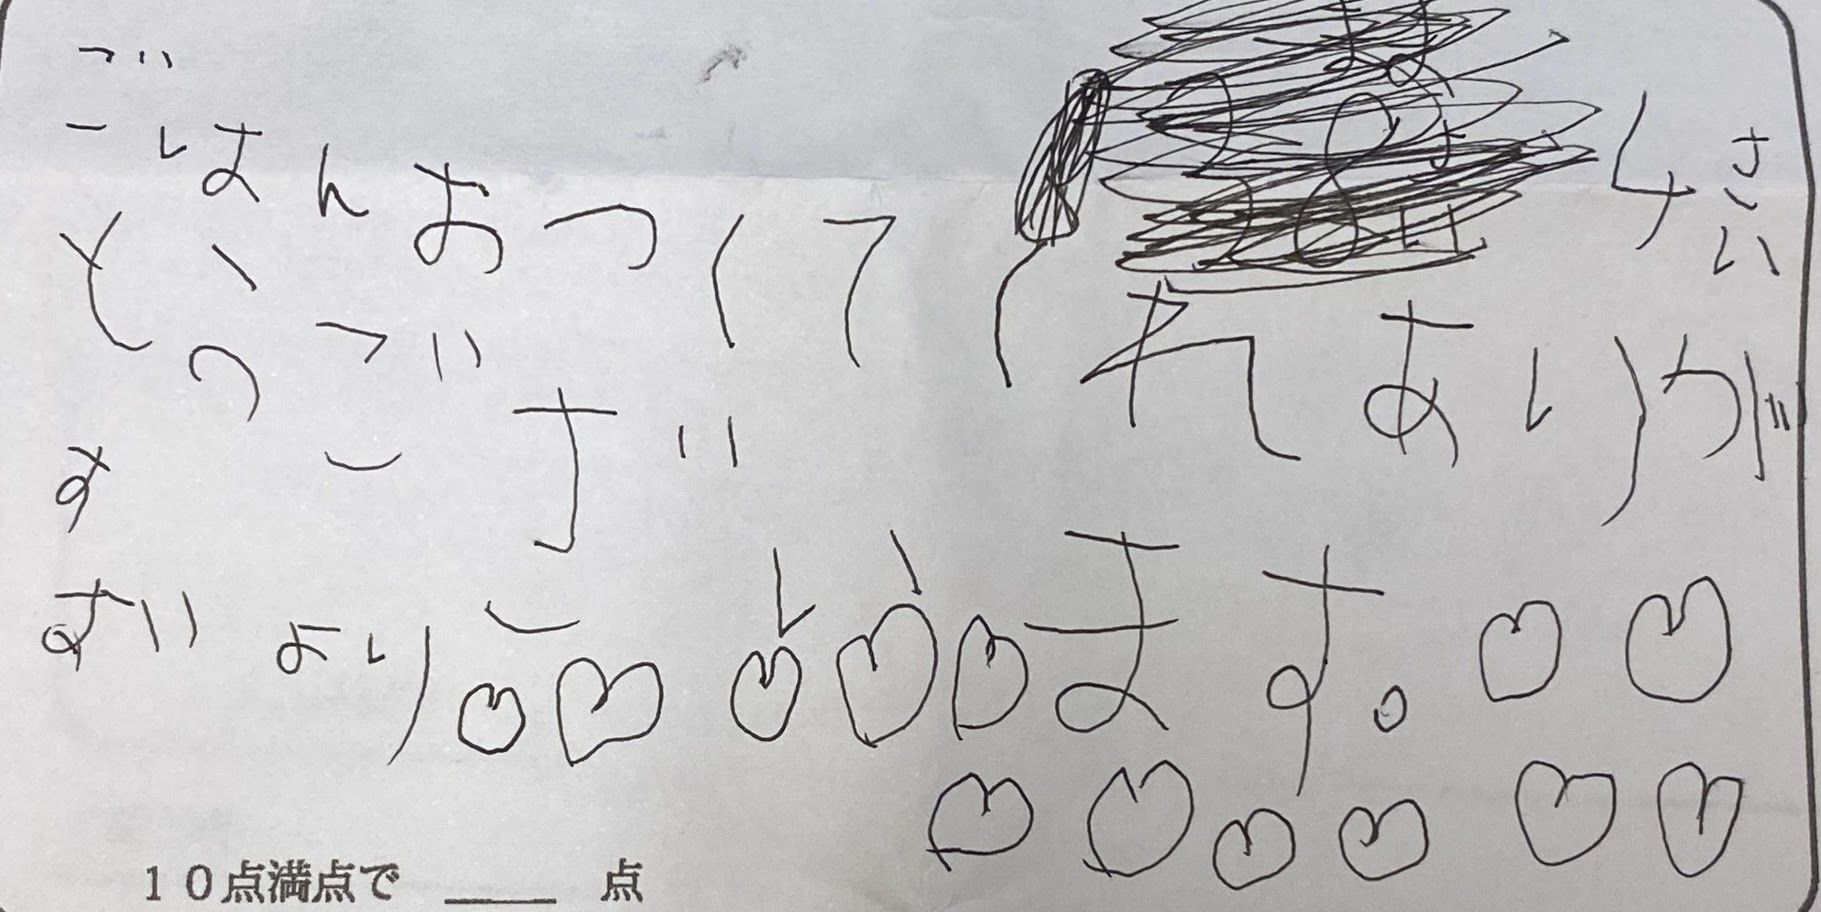 ごはんおつくてくれありが
とうございます。
4さい
すずより
10点満点で ____ 点